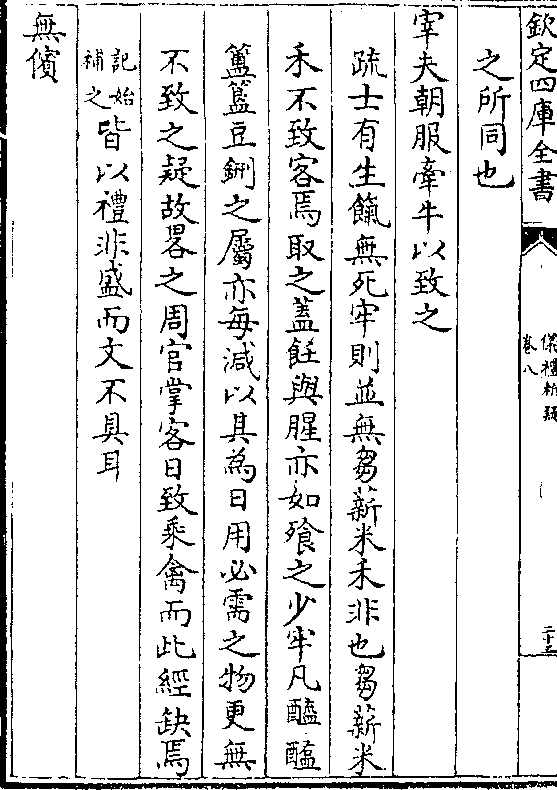 欽定四庫全書
儀禮析疑
卷八
二十三
之所同也
宰夫朝服牽牛以致之
疏士有生餼無死牢則並無芻薪米禾非也芻薪米
禾不致客焉取之蓋飪與腥亦如飱之少牢凡醯醢
簠簋豆鉶之屬亦每減以其為日用必需之物更無
不致之疑故畧之周官掌客日致乘禽而此經缺焉
記始補之皆以禮非盛而文不具耳
無儐